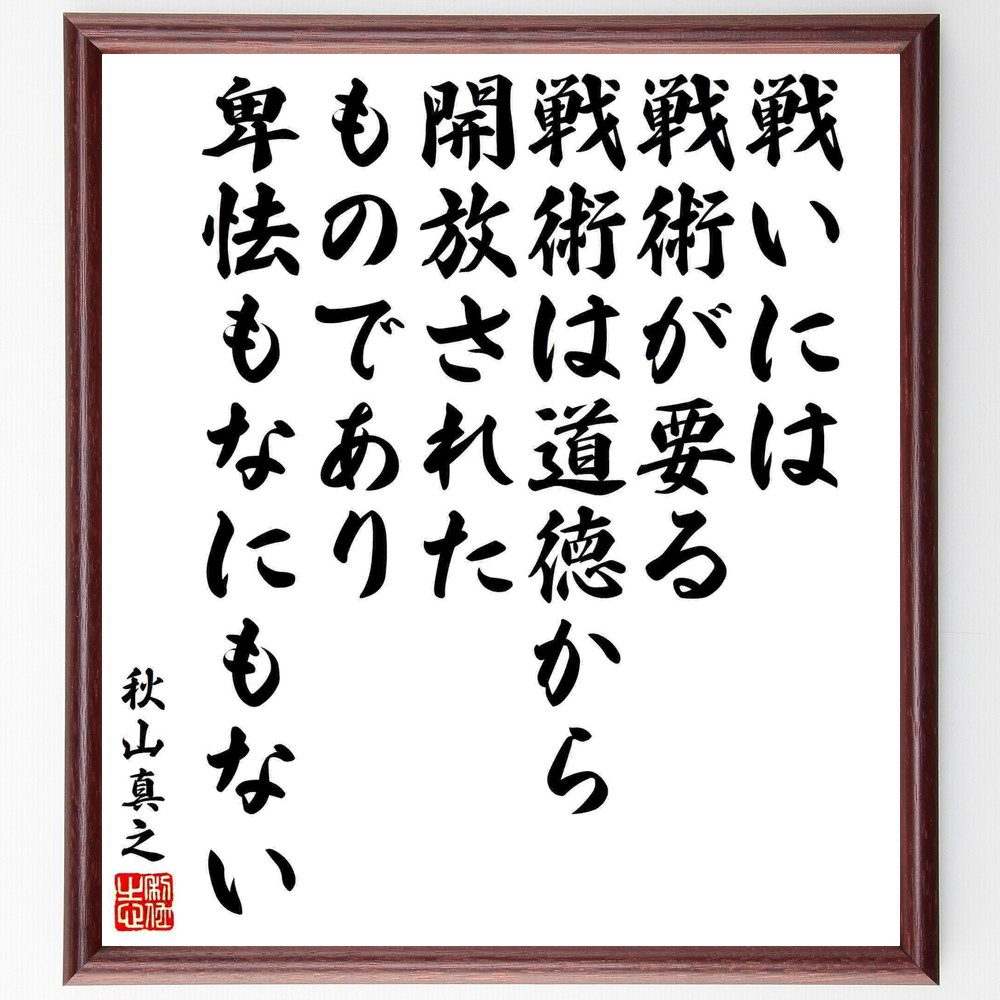 戦いには
戦術が要る
戦術は道徳から
開放された
ものであり
卑怯もなにもない
秋山真之